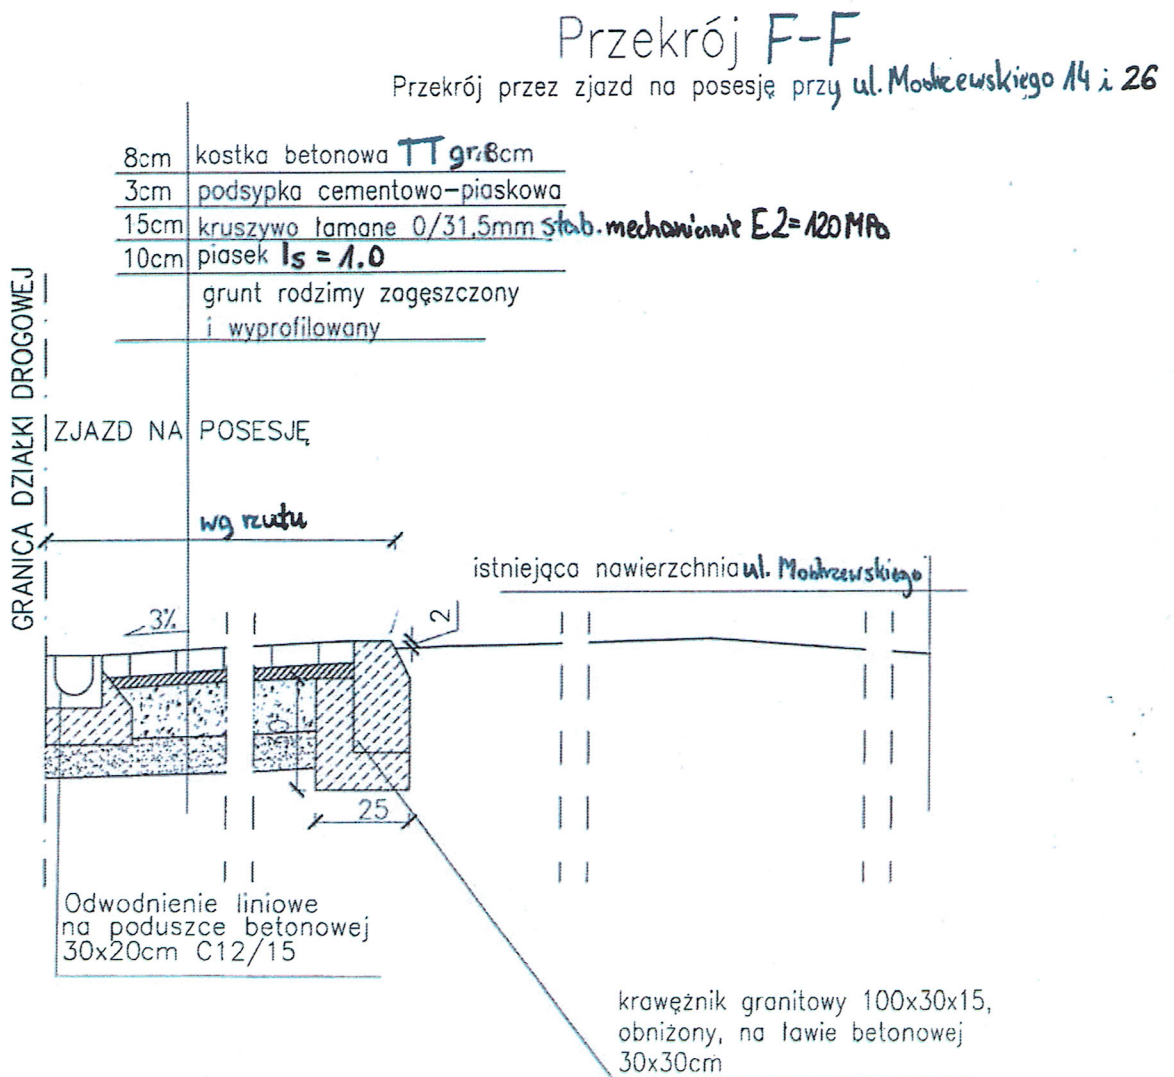 Przekrój F-F
Przekrój przez zjazd na posesję przy ul. 14 i 26
8cm kostka betonowa TT gr. 8cm
3cm podsypka cementowo-piaskowa
15cm kruszywo łamane 0/31,5mm stab. mechanicznie E2=120MPa
10cm piasek Is = 1.0
grunt rodzimy zagęszczony
i wyprofilowany
GRANICA DZIAŁKI DROGOWEJ
ZJAZD NA POSESJĘ
wg rzutu
istniejąca nawierzchnia ul.
3%
2
25
Odwodnienie liniowe
na poduszce betonowej
30x20cm C12/15
krawężnik granitowy 100x30x15,
obniżony, na ławie betonowej
30x30cm